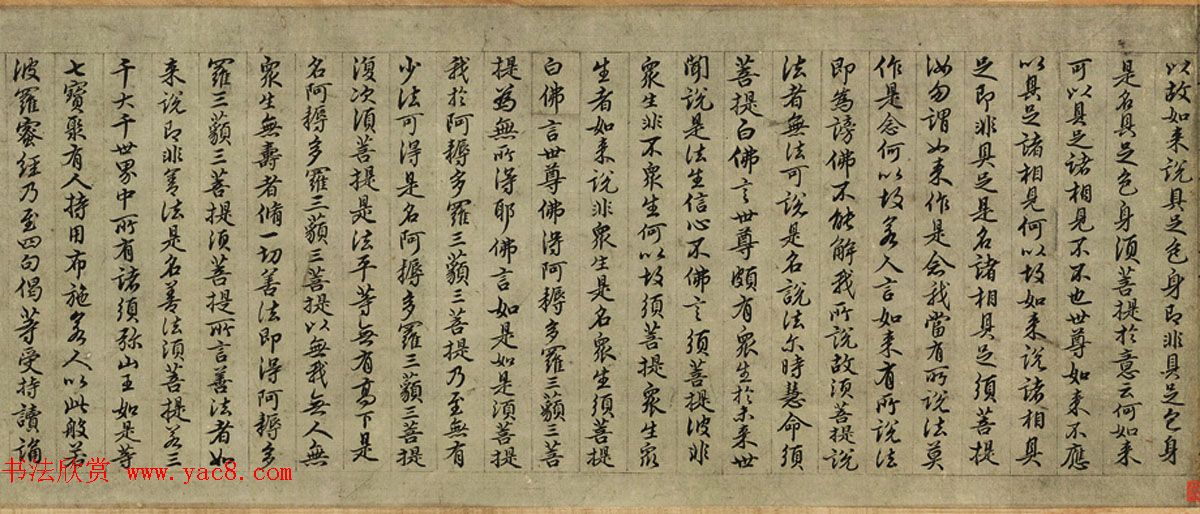 以故如来說具足色身即非具足色身
是名具足色身須菩提於意云何如来
可以具足諸相見不不也世尊如来不應
以具足諸相見何以故如来說諸相具
足即非具足是名諸相具足須菩提
汝勿謂如来作是念我當有所說法莫
作是念何以故若人言如来有所說法
即為謗佛不能解我所說故須菩提說
法者無法可說是名說法尒時慧命須
菩提白佛言世尊頗有衆生於未来世
聞說是法生信心不佛言須菩提彼非
衆生非不衆生何以故須菩提衆生衆
生者如来說非衆生是名衆生須菩提
白佛言世尊佛得阿耨多羅三藐三菩
提為無所得耶佛言如是如是須菩提
我於阿耨多羅三藐三菩提乃至無有
少法可得是名阿耨多羅三藐三菩提
復次須菩提是法平等無有高下是
名阿耨多羅三藐三菩提以無我無人無
衆生無壽者脩一切善法即得阿耨多
羅三藐三菩提須菩提所言善法者如
来說即非善法是名善法須菩提若三
千大千世界中所有諸須弥山王如是等
七寶聚有人持用布施若人以此般若
波羅蜜經乃至四句偈等受持讀誦
书法欣赏 www.yac8.com